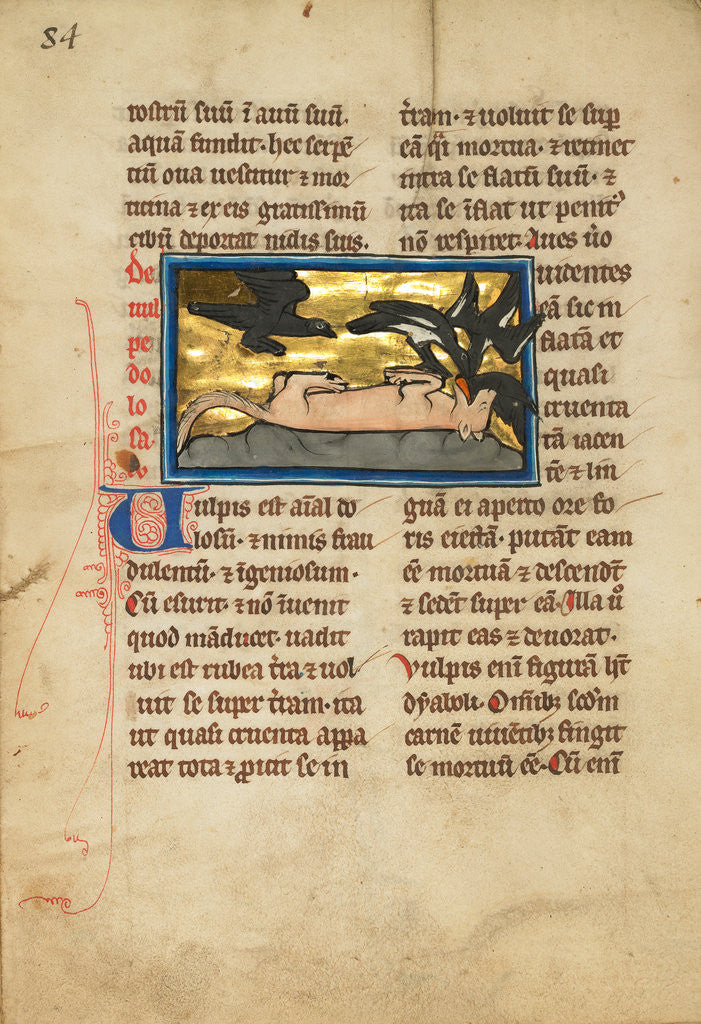 84
rostrū suū ī auū suū.
aquā fundit. hec serpē
tiū oua uescitur ⁊ mor
ticina ⁊ ex eis gratissimū
cibū deportat nidis suis.
De
uul
pe
do
lo
sa.
Uulpis est aīal do
losū. ⁊ nimis frau
dulentū. ⁊ īgeniosum.
Cū esurit. ⁊ nō īuenit
quod māducet. uadit
ubi est rubea t̄ra ⁊ uol
uit se super t̄ram. ita
ut quasi cruenta appa
reat tota ⁊ ꝓicit se in
t̄ram. ⁊ uoluit se suꝑ
eā q̄i mortua. ⁊ retinet
intra se flatū suū. ⁊
ita se īflat ut penit᾽
nō respiret. Aues u̇o
uidentes
eā sic in
flatā et
quasi
cruenta
tā iacen
tē ⁊ lin
guā ei aperto ore fo
ris eiectā. putāt eam
eē mortuā ⁊ descendt̄
⁊ sedēt super eā. Illa uͦ
rapit eas ⁊ deuorat.
Vulpis enī figurā h̄t
dyaboli. Omībꝫ scdm̄
carnē uiuētibꝫ fingit
se mortuū eē. Cū enī